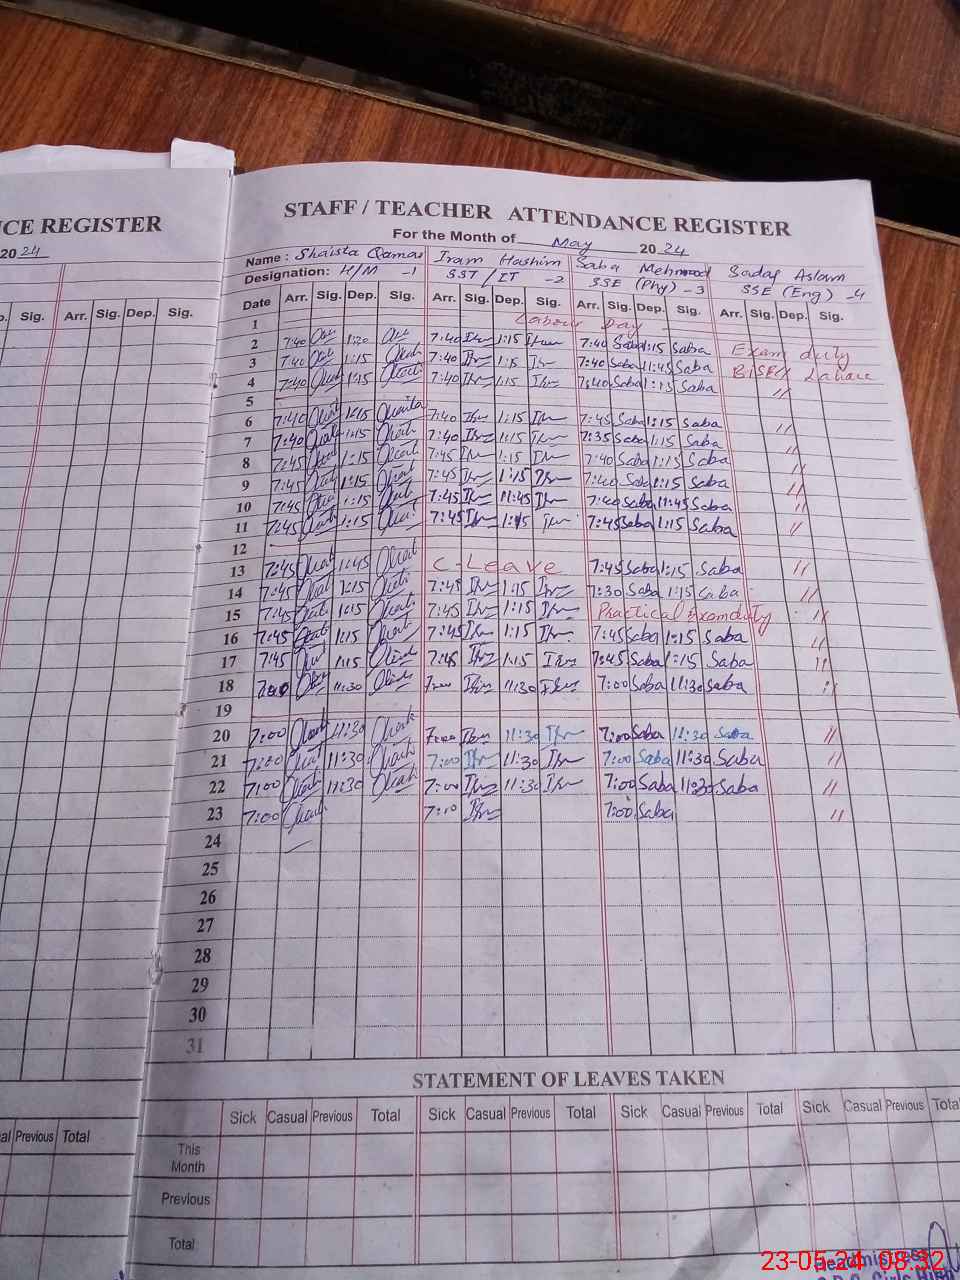 NCE REGISTER
20 24
STAFF / TEACHER ATTENDANCE REGISTER
For the Month of May 20 24
Name : Shaista Qamar Iram Hashim Saba Mehmood Sadaf Aslam
Designation: H/M -1 SST / IT -2 SSE (Phy) -3 SSE (Eng) -4
p. Sig. Arr. Sig. Dep. Sig.
Date Arr. Sig. Dep. Sig. Arr. Sig. Dep. Sig. Arr. Sig. Dep. Sig. Arr. Sig. Dep. Sig.
1 Labour Day
2 7:40 1:20 7:40 1:15 7:40 Saba 1:15 Saba Exam duty
3 7:40 1:15 7:40 1:15 7:40 Saba 11:45 Saba BISE Lahore
4 7:40 1:15 7:40 1:15 7:40 Saba 1:15 Saba "
5
6 7:40 1:15 7:40 1:15 7:45 Saba 1:15 Saba "
7 7:40 1:15 7:40 1:15 7:35 Saba 1:15 Saba "
8 7:45 1:15 7:45 1:15 7:40 Saba 1:15 Saba "
9 7:45 1:15 7:45 1:15 7:40 Saba 1:15 Saba "
10 7:45 1:15 7:45 11:45 7:40 Saba 11:45 Saba "
11 7:45 1:15 7:45 1:15 7:45 Saba 1:15 Saba "
12
13 7:45 1:45 C-Leave 7:45 Saba 1:15 Saba "
14 7:45 1:15 7:45 1:15 7:30 Saba 1:15 Saba "
15 7:45 1:15 7:45 1:15 Practical Exam duty "
16 7:45 1:15 7:45 1:15 7:45 Saba 1:15 Saba "
17 7:45 1:15 7:45 1:15 7:45 Saba 1:15 Saba "
18 7:00 11:30 7:00 11:30 7:00 Saba 11:30 Saba "
19
20 7:00 11:30 7:00 11:30 7:00 Saba 11:30 Saba "
21 7:00 11:30 7:00 11:30 7:00 Saba 11:30 Saba "
22 7:00 11:30 7:00 11:30 7:00 Saba 11:30 Saba "
23 7:00 7:10 7:00 Saba "
24
25
26
27
28
29
30
31
STATEMENT OF LEAVES TAKEN
Sick Casual Previous Total Sick Casual Previous Total Sick Casual Previous Total Sick Casual Previous Total
al Previous Total
This Month
Previous
Total
Headmistress
23-05-24 08:32